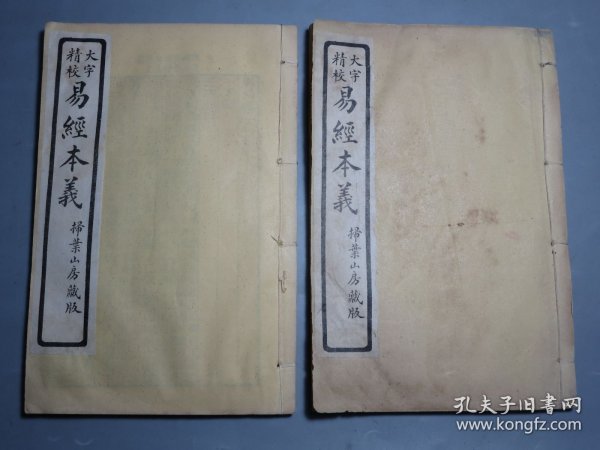 大字
精校
易經本義
掃葉山房藏版
大字
精校
易經本義
掃葉山房藏版
孔夫子旧书网
www.kongfz.com